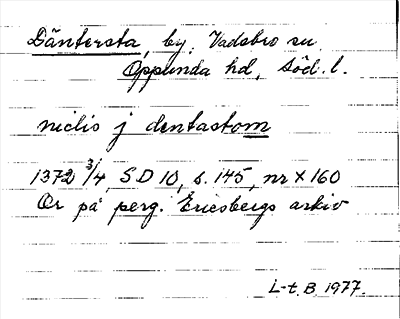 Däntersta, by, Vadsbro sn
Oppunda hd, Söd. l.
niclis j dentastom
1372 3/4, SD 10, s. 145, nr X 160
Or på perg. Ericsbergs arkiv
L-t. B. 1977.